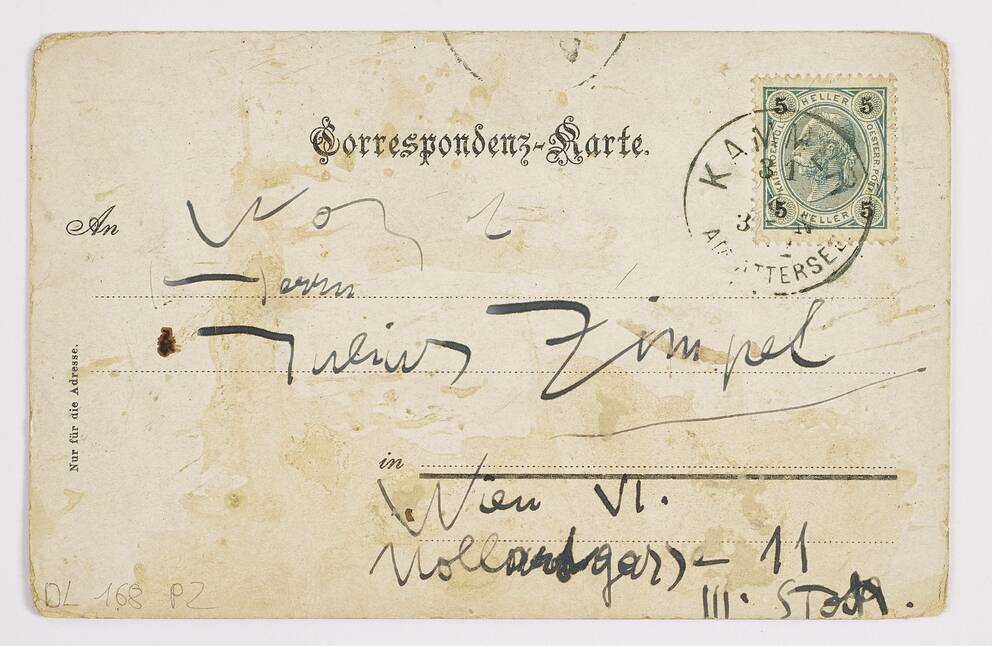 Correspondenz-Karte.
5 HELLER 5
KAISERL. KÖNIGL. OESTERR. POST
5 HELLER 5
KAMMER
AM ATTERSEE
An
Herrn
Julius Zimpel
Nur für die Adresse.
in
Wien VI.
Mollardgasse 11
III. Stock.
DL 168 PZ